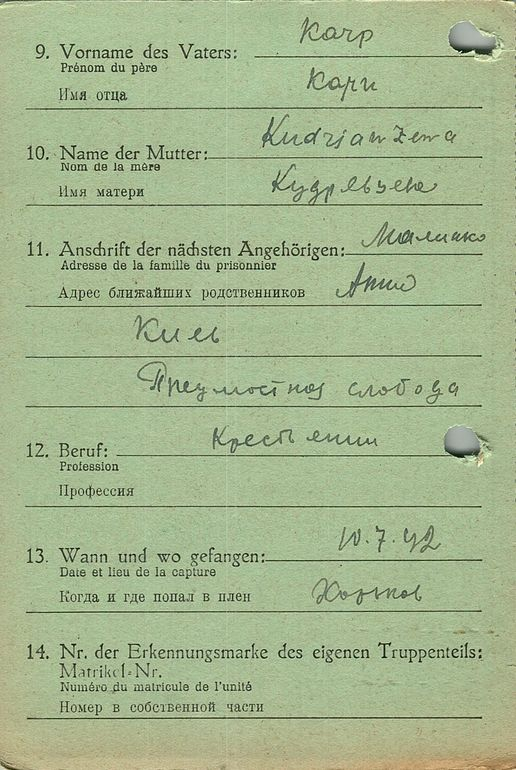 9. Vorname des Vaters: Karp
Prénom du père
Имя отца Карп
10. Name der Mutter: Kudrjawzewa
Nom de la mère
Имя матери
11. Anschrift der nächsten Angehörigen:
Adresse de la famille du prisonnier
Адрес ближайших родственников Анна
Преумостная слобода
12. Beruf:
Profession
Профессия
13. Wann und wo gefangen: 10.7.42
Date et lieu de la capture
Когда и где попал в плен Харьков
14. Nr. der Erkennungsmarke des eigenen Truppenteils:
Matrikel-Nr.
Numéro du matricule de l'unité
Номер в собственной части